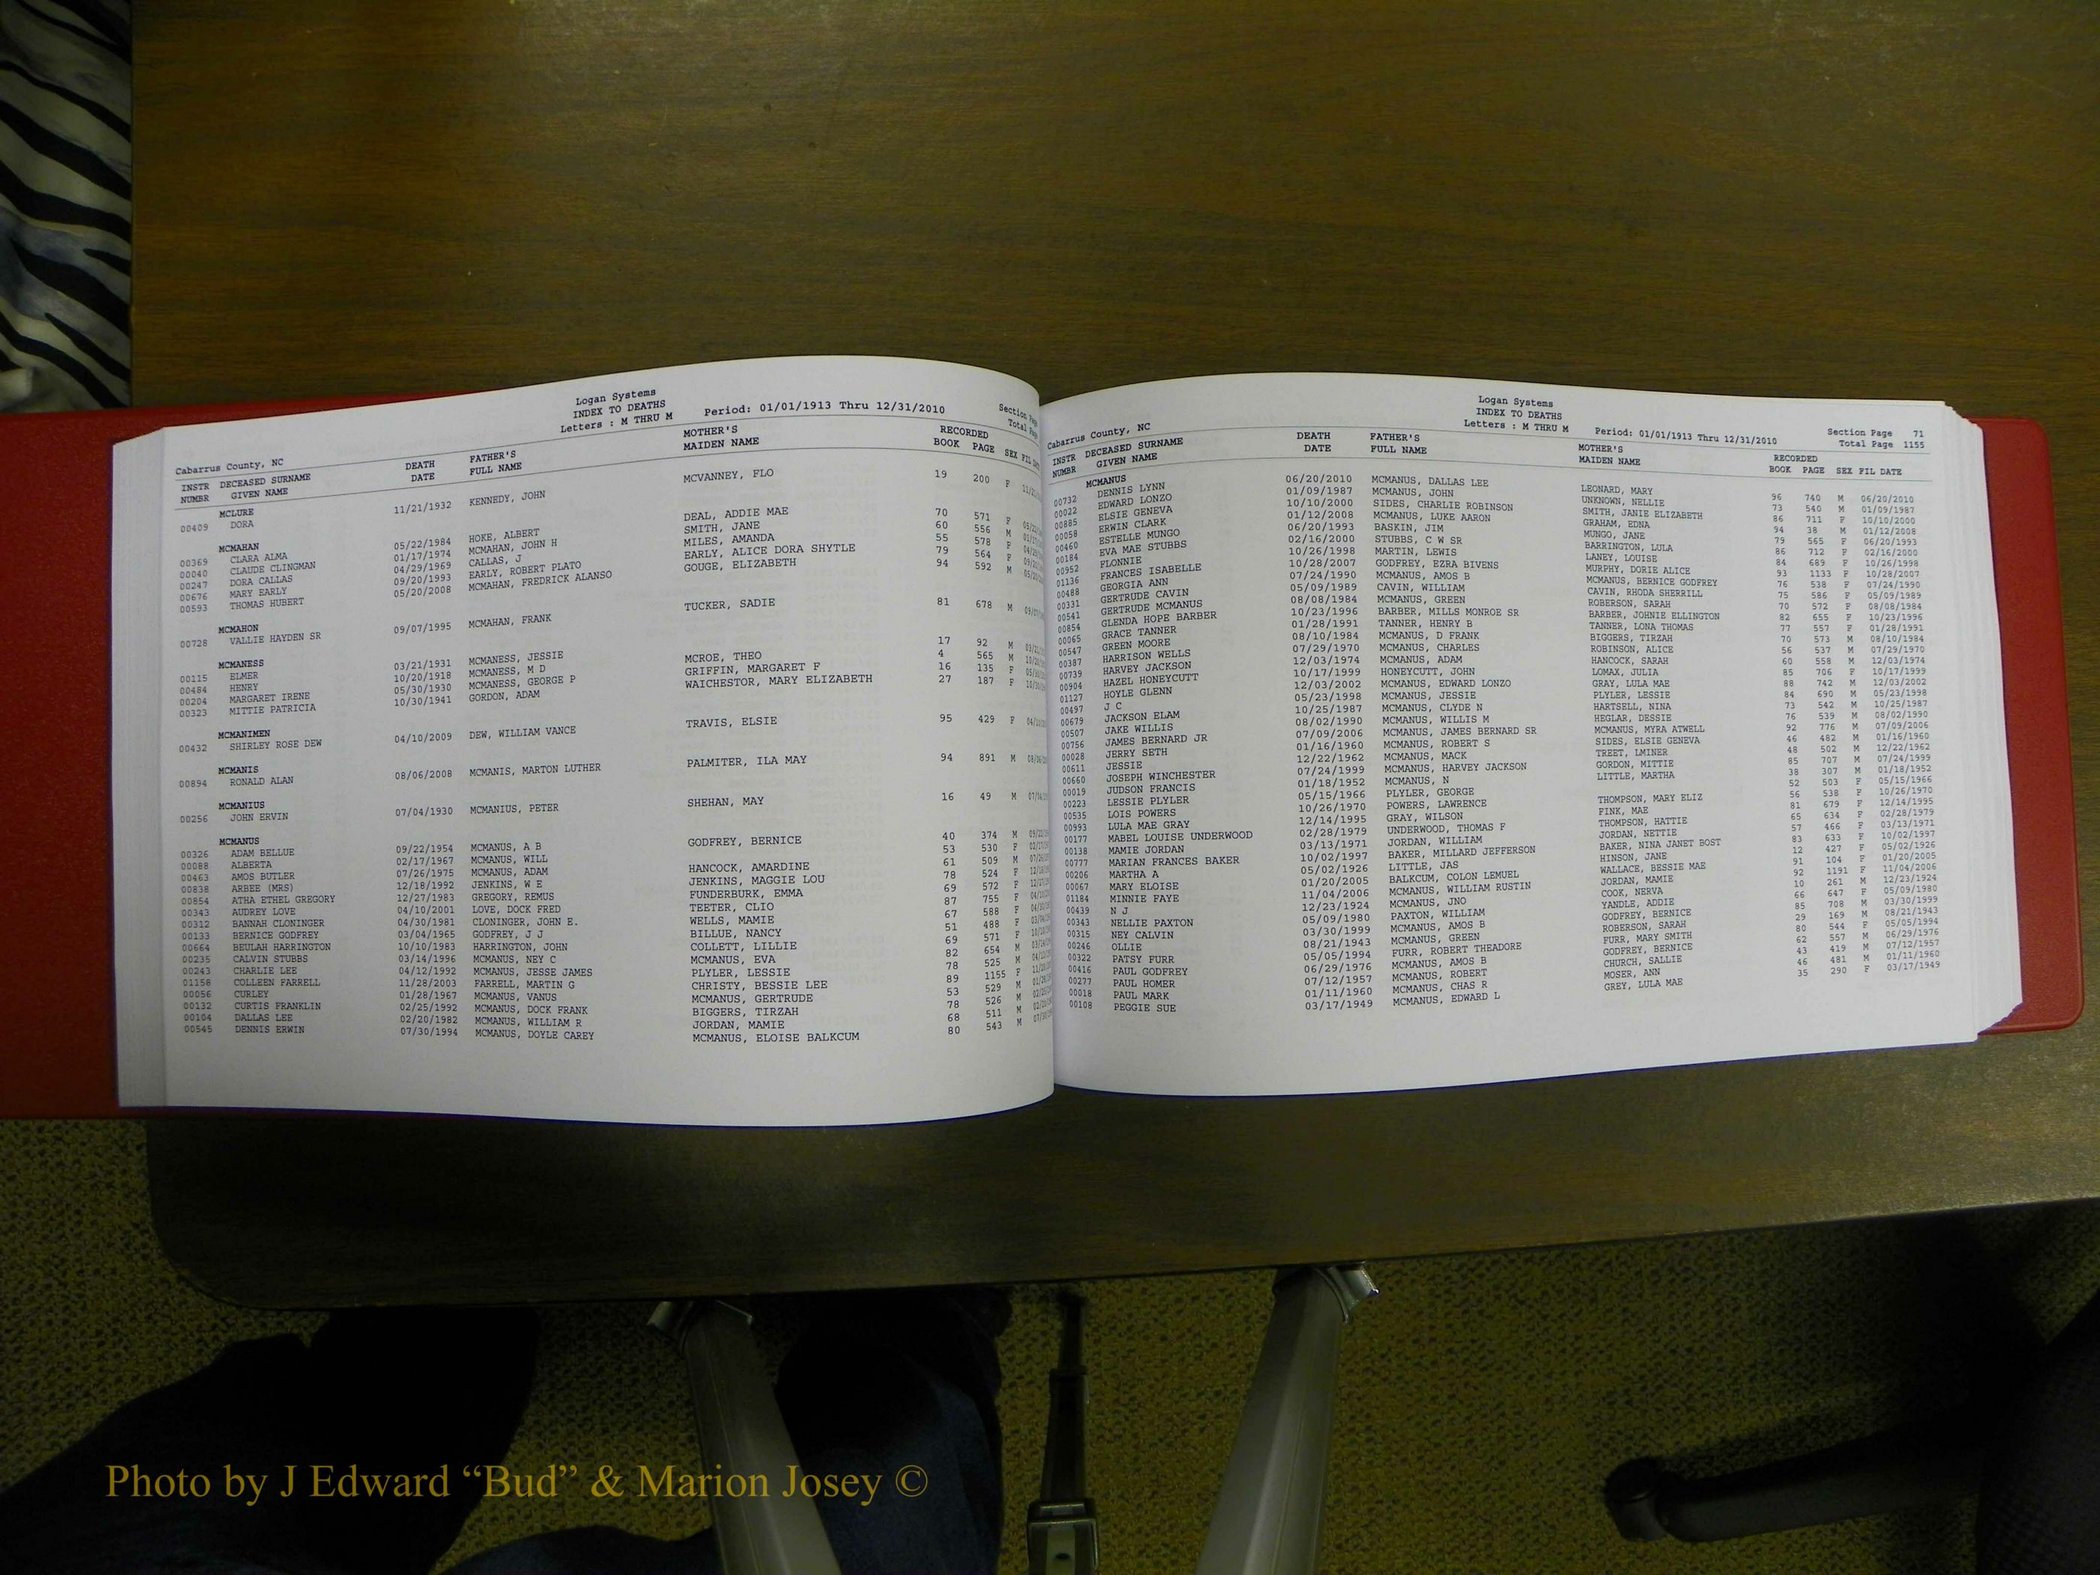 Logan Systems
INDEX TO DEATHS
Letters : M THRU M Period: 01/01/1913 Thru 12/31/2010 Section
Cabarrus County, NC Total
INSTR DECEASED SURNAME DEATH FATHER'S MOTHER'S RECORDED
NUMBR GIVEN NAME DATE FULL NAME MAIDEN NAME BOOK PAGE SEX FIL
MCLURE
00409 DORA 11/21/1932 KENNEDY, JOHN MCVANNEY, FLO 19 200 F
MCMAHAN
00369 CLARA ALMA 05/22/1984 HOKE, ALBERT DEAL, ADDIE MAE 70 571 F
00040 CLAUDE CLINGMAN 01/17/1974 MCMAHAN, JOHN H SMITH, JANE 60 556 M
00247 DORA CALLAS 04/29/1969 CALLAS, J MILES, AMANDA 55 578 F
00676 MARY EARLY 09/20/1993 EARLY, ROBERT PLATO EARLY, ALICE DORA SHYTLE 79 564 F
00593 THOMAS HUBERT 05/20/2008 MCMAHAN, FREDRICK ALANSO GOUGE, ELIZABETH 94 592 M
MCMAHON
00728 VALLIE HAYDEN SR 09/07/1995 MCMAHAN, FRANK TUCKER, SADIE 81 678 M
MCMANESS
00115 ELMER 03/21/1931 MCMANESS, JESSIE 17 92 M
00484 HENRY 10/20/1918 MCMANESS, M D MCROE, THEO 4 565 M
00204 MARGARET IRENE 05/30/1930 MCMANESS, GEORGE P GRIFFIN, MARGARET F 16 135 F
00323 MITTIE PATRICIA 10/30/1941 GORDON, ADAM WAICHESTOR, MARY ELIZABETH 27 187 F
MCMANIMEN
00432 SHIRLEY ROSE DEW 04/10/2009 DEW, WILLIAM VANCE TRAVIS, ELSIE 95 429 F
MCMANIS
00894 RONALD ALAN 08/06/2008 MCMANIS, MARTON LUTHER PALMITER, ILA MAY 94 891 M
MCMANIUS
00256 JOHN ERVIN 07/04/1930 MCMANIUS, PETER SHEHAN, MAY 16 49 M
MCMANUS
00326 ADAM BELLUE 09/22/1954 MCMANUS, A B GODFREY, BERNICE 40 374 M
00088 ALBERTA 02/17/1967 MCMANUS, WILL 53 530 F
00463 AMOS BUTLER 07/26/1975 MCMANUS, ADAM HANCOCK, AMARDINE 61 509 M
00838 ARBEE (MRS) 12/18/1992 JENKINS, W E JENKINS, MAGGIE LOU 78 524 F
00854 ATHA ETHEL GREGORY 12/27/1983 GREGORY, REMUS FUNDERBURK, EMMA 69 572 F
00343 AUDREY LOVE 04/10/2001 LOVE, DOCK FRED TEETER, CLIO 87 755 F
00312 BANNAH CLONINGER 04/30/1981 CLONINGER, JOHN E. WELLS, MAMIE 67 588 F
00133 BERNICE GODFREY 03/04/1965 GODFREY, J J BILLUE, NANCY 51 488 F
00664 BEULAH HARRINGTON 10/10/1983 HARRINGTON, JOHN COLLETT, LILLIE 69 571 F
00235 CALVIN STUBBS 03/14/1996 MCMANUS, NEY C MCMANUS, EVA 82 654 M
00243 CHARLIE LEE 04/12/1992 MCMANUS, JESSE JAMES PLYLER, LESSIE 78 525 M
01158 COLLEEN FARRELL 11/28/2003 FARRELL, MARTIN G CHRISTY, BESSIE LEE 89 1155 F
00056 CURLEY 01/28/1967 MCMANUS, VANUS MCMANUS, GERTRUDE 53 529 M
00132 CURTIS FRANKLIN 02/25/1992 MCMANUS, DOCK FRANK BIGGERS, TIRZAH 78 526 M
00104 DALLAS LEE 02/20/1982 MCMANUS, WILLIAM R JORDAN, MAMIE 68 511 M
00545 DENNIS ERWIN 07/30/1994 MCMANUS, DOYLE CAREY MCMANUS, ELOISE BALKCUM 80 543 M
Logan Systems
INDEX TO DEATHS
Letters : M THRU M Period: 01/01/1913 Thru 12/31/2010 Section Page 71
Cabarrus County, NC Total Page 1155
INSTR DECEASED SURNAME DEATH FATHER'S MOTHER'S RECORDED
NUMBR GIVEN NAME DATE FULL NAME MAIDEN NAME BOOK PAGE SEX FIL DATE
MCMANUS
00732 DENNIS LYNN 06/20/2010 MCMANUS, DALLAS LEE LEONARD, MARY 96 740 M 06/20/2010
00022 EDWARD LONZO 01/09/1987 MCMANUS, JOHN UNKNOWN, NELLIE 73 540 M 01/09/1987
00885 ELSIE GENEVA 10/10/2000 SIDES, CHARLIE ROBINSON SMITH, JANIE ELIZABETH 86 711 F 10/10/2000
00058 ERWIN CLARK 01/12/2008 MCMANUS, LUKE AARON GRAHAM, EDNA 94 38 M 01/12/2008
00460 ESTELLE MUNGO 06/20/1993 BASKIN, JIM MUNGO, JANE 79 565 F 06/20/1993
00184 EVA MAE STUBBS 02/16/2000 STUBBS, C W SR BARRINGTON, LULA 86 712 F 02/16/2000
00952 FLONNIE 10/26/1998 MARTIN, LEWIS LANEY, LOUISE 84 689 F 10/26/1998
01136 FRANCES ISABELLE 10/28/2007 GODFREY, EZRA BIVENS MURPHY, DORIE ALICE 93 1133 F 10/28/2007
00488 GEORGIA ANN 07/24/1990 MCMANUS, AMOS B MCMANUS, BERNICE GODFREY 76 538 F 07/24/1990
00331 GERTRUDE CAVIN 05/09/1989 CAVIN, WILLIAM CAVIN, RHODA SHERRILL 75 586 F 05/09/1989
00541 GERTRUDE MCMANUS 08/08/1984 MCMANUS, GREEN ROBERSON, SARAH 70 572 F 08/08/1984
00854 GLENDA HOPE BARBER 10/23/1996 BARBER, MILLS MONROE SR BARBER, JOHNIE ELLINGTON 82 655 F 10/23/1996
00065 GRACE TANNER 01/28/1991 TANNER, HENRY B TANNER, LONA THOMAS 77 557 F 01/28/1991
00547 GREEN MOORE 08/10/1984 MCMANUS, D FRANK BIGGERS, TIRZAH 70 573 M 08/10/1984
00387 HARRISON WELLS 07/29/1970 MCMANUS, CHARLES ROBINSON, ALICE 56 537 M 07/29/1970
00739 HARVEY JACKSON 12/03/1974 MCMANUS, ADAM HANCOCK, SARAH 60 558 M 12/03/1974
00904 HAZEL HONEYCUTT 10/17/1999 HONEYCUTT, JOHN LOMAX, JULIA 85 706 F 10/17/1999
01127 HOYLE GLENN 12/03/2002 MCMANUS, EDWARD LONZO GRAY, LULA MAE 88 742 M 12/03/2002
00497 J C 05/23/1998 MCMANUS, JESSIE PLYLER, LESSIE 84 690 M 05/23/1998
00679 JACKSON ELAM 10/25/1987 MCMANUS, CLYDE N HARTSELL, NINA 73 542 M 10/25/1987
00507 JAKE WILLIS 08/02/1990 MCMANUS, WILLIS M HEGLAR, DESSIE 76 539 M 08/02/1990
00756 JAMES BERNARD JR 07/09/2006 MCMANUS, JAMES BERNARD SR MCMANUS, MYRA ATWELL 92 776 M 07/09/2006
00028 JERRY SETH 01/16/1960 MCMANUS, ROBERT S SIDES, ELSIE GENEVA 46 482 M 01/16/1960
00611 JESSIE 12/22/1962 MCMANUS, MACK TREET, LMINER 48 502 M 12/22/1962
00660 JOSEPH WINCHESTER 07/24/1999 MCMANUS, HARVEY JACKSON GORDON, MITTIE 85 707 M 07/24/1999
00019 JUDSON FRANCIS 01/18/1952 MCMANUS, N LITTLE, MARTHA 38 307 M 01/18/1952
00223 LESSIE PLYLER 05/15/1966 PLYLER, GEORGE 52 503 F 05/15/1966
00535 LOIS POWERS 10/26/1970 POWERS, LAWRENCE THOMPSON, MARY ELIZ 56 538 F 10/26/1970
00993 LULA MAE GRAY 12/14/1995 GRAY, WILSON PINK, MAE 81 679 F 12/14/1995
00177 MABEL LOUISE UNDERWOOD 02/28/1979 UNDERWOOD, THOMAS F THOMPSON, HATTIE 65 634 F 02/28/1979
00138 MAMIE JORDAN 03/13/1971 JORDAN, WILLIAM JORDAN, NETTIE 57 466 F 03/13/1971
00777 MARIAN FRANCES BAKER 10/02/1997 BAKER, MILLARD JEFFERSON BAKER, NINA JANET BOST 83 633 F 10/02/1997
00206 MARTHA A 05/02/1926 LITTLE, JAS HINSON, JANE 12 427 F 05/02/1926
00067 MARY ELOISE 01/20/2005 BALKCUM, COLON LEMUEL WALLACE, BESSIE MAE 91 104 F 01/20/2005
01184 MINNIE FAYE 11/04/2006 MCMANUS, WILLIAM RUSTIN JORDAN, MAMIE 92 1191 F 11/04/2006
00439 N J 12/23/1924 MCMANUS, JNO COOK, NERVA 10 261 M 12/23/1924
00343 NELLIE PAXTON 05/09/1980 PAXTON, WILLIAM YANDLE, ADDIE 66 647 F 05/09/1980
00315 NEY CALVIN 03/30/1999 MCMANUS, AMOS B GODFREY, BERNICE 85 708 M 03/30/1999
00246 OLLIE 08/21/1943 MCMANUS, GREEN ROBERSON, SARAH 29 169 M 08/21/1943
00322 PATSY FURR 05/05/1994 FURR, ROBERT THEADORE FURR, MARY SMITH 80 544 F 05/05/1994
00416 PAUL GODFREY 06/29/1976 MCMANUS, AMOS B GODFREY, BERNICE 62 557 M 06/29/1976
00277 PAUL HOMER 07/12/1957 MCMANUS, ROBERT CHURCH, SALLIE 43 419 M 07/12/1957
00018 PAUL MARK 01/11/1960 MCMANUS, CHAS R MOSER, ANN 46 481 M 01/11/1960
00108 PEGGIE SUE 03/17/1949 MCMANUS, EDWARD L GREY, LULA MAE 35 290 F 03/17/1949
Photo by J Edward “Bud” & Marion Josey ©